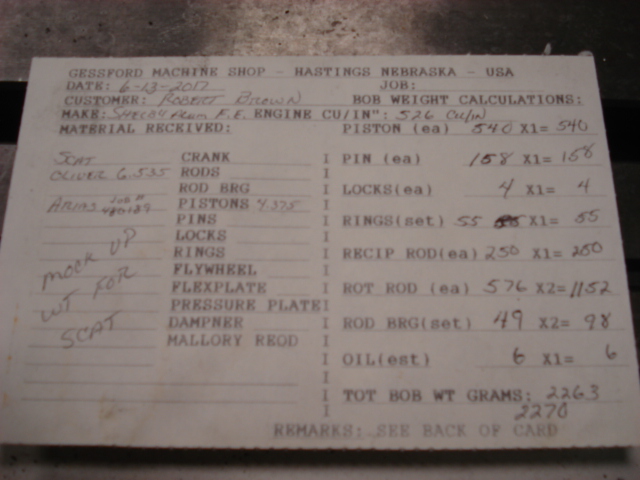 GESSFORD MACHINE SHOP - HASTINGS NEBRASKA - USA
DATE: 6-13-2017 JOB:
CUSTOMER: ROBERT BROWN BOB WEIGHT CALCULATIONS:
MAKE: SHELBY F.E. ENGINE CU/IN": 526 CU/IN
MATERIAL RECEIVED: PISTON (ea) 540 X1= 540
SCAT CRANK I PIN (ea) 158 X1= 158
OLIVER 6.535 RODS I
ROD BRG I LOCKS(ea) 4 X1= 4
ARIAS JOB # 480189 PISTONS 4.375 I
PINS I RINGS(set) 55 X1= 55
LOCKS I
RINGS I RECIP ROD(ea) 250 X1= 250
MOCK UP FLYWHEEL I
WT FOR FLEXPLATE I ROT ROD (ea) 576 X2= 1152
SCAT PRESSURE PLATE I
DAMPNER I ROD BRG(set) 49 X2= 98
MALLORY REQD I
I OIL(est) 6 X1= 6
I
I TOT BOB WT GRAMS: 2263
I 2270
REMARKS: SEE BACK OF CARD